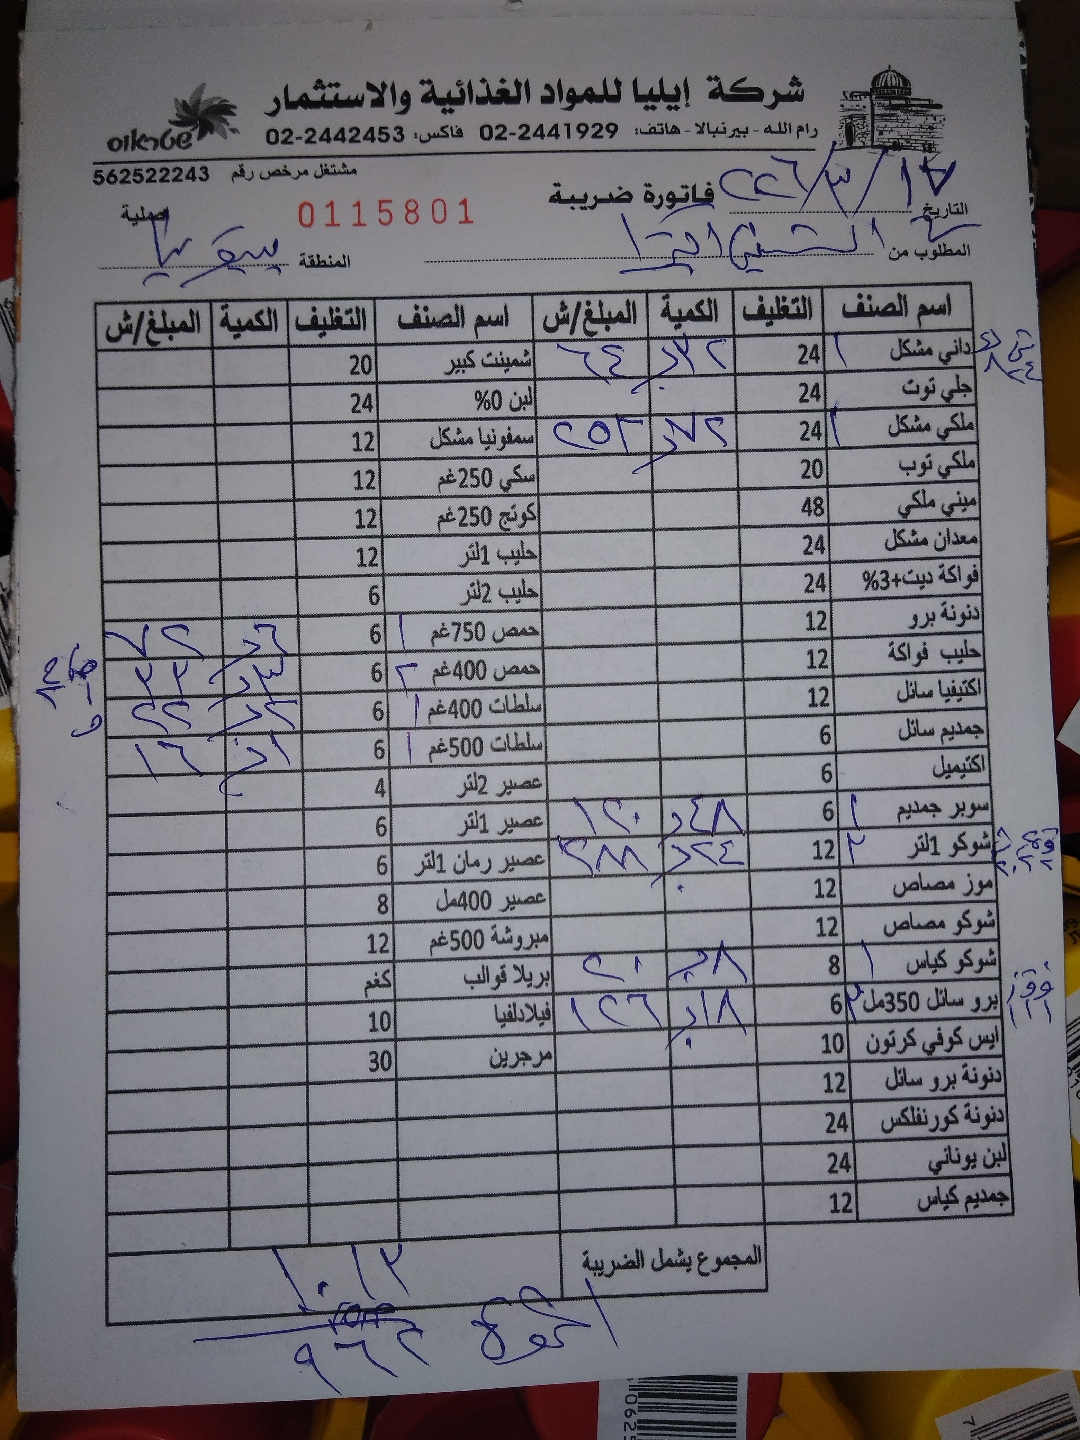 شركة إيليا للمواد الغذائية والاستثمار
رام الله - بيرنبالا - هاتف: 02-2441929 فاكس: 02-2442453
مشتغل مرخص رقم 562522243
التاريخ فاتورة ضريبة 0115801 أصلية
المطلوب من المنطقة
اسم الصنف التغليف الكمية المبلغ/ش اسم الصنف التغليف الكمية المبلغ/ش
داني مشكل ١ 24 ٣٢د ٦٤ شمينت كبير 20
جلي توت 24 لبن 0% 24
ملكي مشكل ١ 24 ٧٢د ٢٥٢ سمفونيا مشكل 12
ملكي توب 20 سكي 250غم 12
ميني ملكي 48 كوتج 250غم 12
معدان مشكل 24 حليب 1لتر 12
فواكة ديت+3% 24 حليب 2لتر 6
دنونة برو 12 حمص 750غم ١ 6 ٦د ٧٢
حليب فواكة 12 حمص 400غم ٢ 6 ٣د ٣٣
اكتيفيا سائل 12 سلطات 400غم ١ 6 ٢د ٢٢
جمديم سائل 6 سلطات 500غم ١ 6 ١٦
اكتيميل 6 عصير 2لتر 4
سوبر جمديم ١ 6 ٤٨د ١٢٠ عصير 1لتر 6
شوكو 1لتر ٢ 12 ٢٤د ٢٨٨ عصير رمان 1لتر 6
موز مصاص 12 عصير 400مل 8
شوكو مصاص 12 مبروشة 500غم 12
شوكو كياس ١ 8 ٨د ٢٠ بريلا قوالب كغم
برو سائل 350مل ٣ 6 ١٨د ١٢٦ فيلادلفيا 10
ايس كوفي كرتون 10 مرجرين 30
دنونة برو سائل 12
دنونة كورنفلكس 24
لبن يوناني 24
جمديم كياس 12
المجموع يشمل الضريبة ١٠١٣
٩٦٢